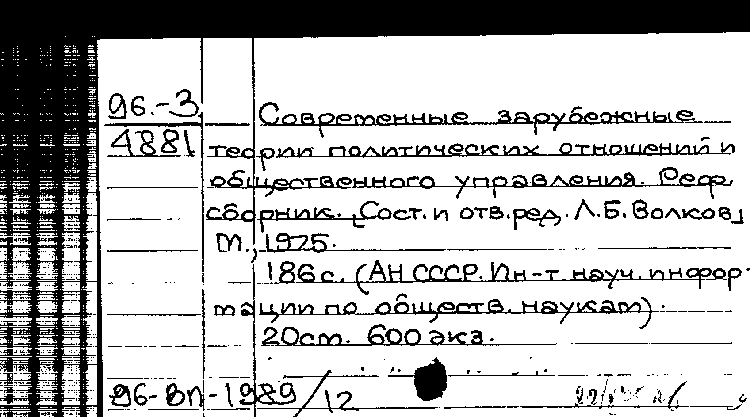 96.-3 Современные зарубежные
4881 теории политических отношений и
общественного управления. Реф.
сборник. [Сост. и отв. ред. Л.Б. Волков]
М., 1975.
186 с. (АН СССР. Ин-т науч. инфор-
мации по обществ. наукам).
20 см. 600 экз.
96-вп-1989/12